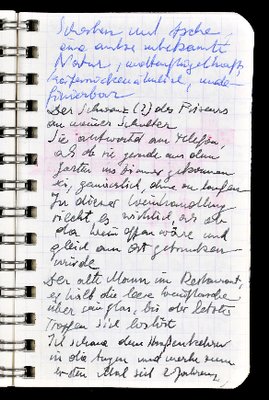 Scherben und Asche,
eine andere unbekannte
Natur,
Der Schwanz (?) des Friseurs
an meiner Schulter
Sie antwortet am Telefon,
als ob sie gerade aus dem
Garten ins Zimmer gekommen
sei, gemächlich, ohne zu laufen
In dieser Weinhandlung
riecht es wirklich, als ob
der Wein offen wäre und
gleich am Ort getrunken
würde
Der alte Mann im Restaurant,
er hält die leere Weinflasche
über sein Glas, bis der letzte
Tropfen sich loslöst
Ich schaue dem Straßenkehrer
in die Augen und merke zum
ersten Mal seit 2 Jahren,